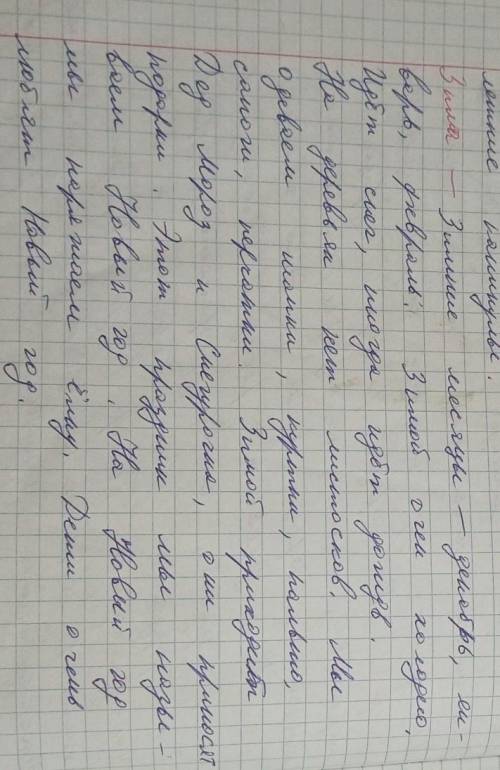 летние каникулы.
Зима — Зимние месяцы — декабрь, ян-
варь, февраль. Зимой очен холодно,
Идёт снег, иногда идёт дождь.
На деревьях нет листосков. Мы
одеваем шапки, куртки, пальто,
сапоги, перчатки. Зимой приходит
Дед Мороз и Снегурочка, они приносят
подарки. Этот праздник мы назы-
ваем Новый год. На Новый год
мы наряжаем ёлку. Дети очень
любят Новый год.